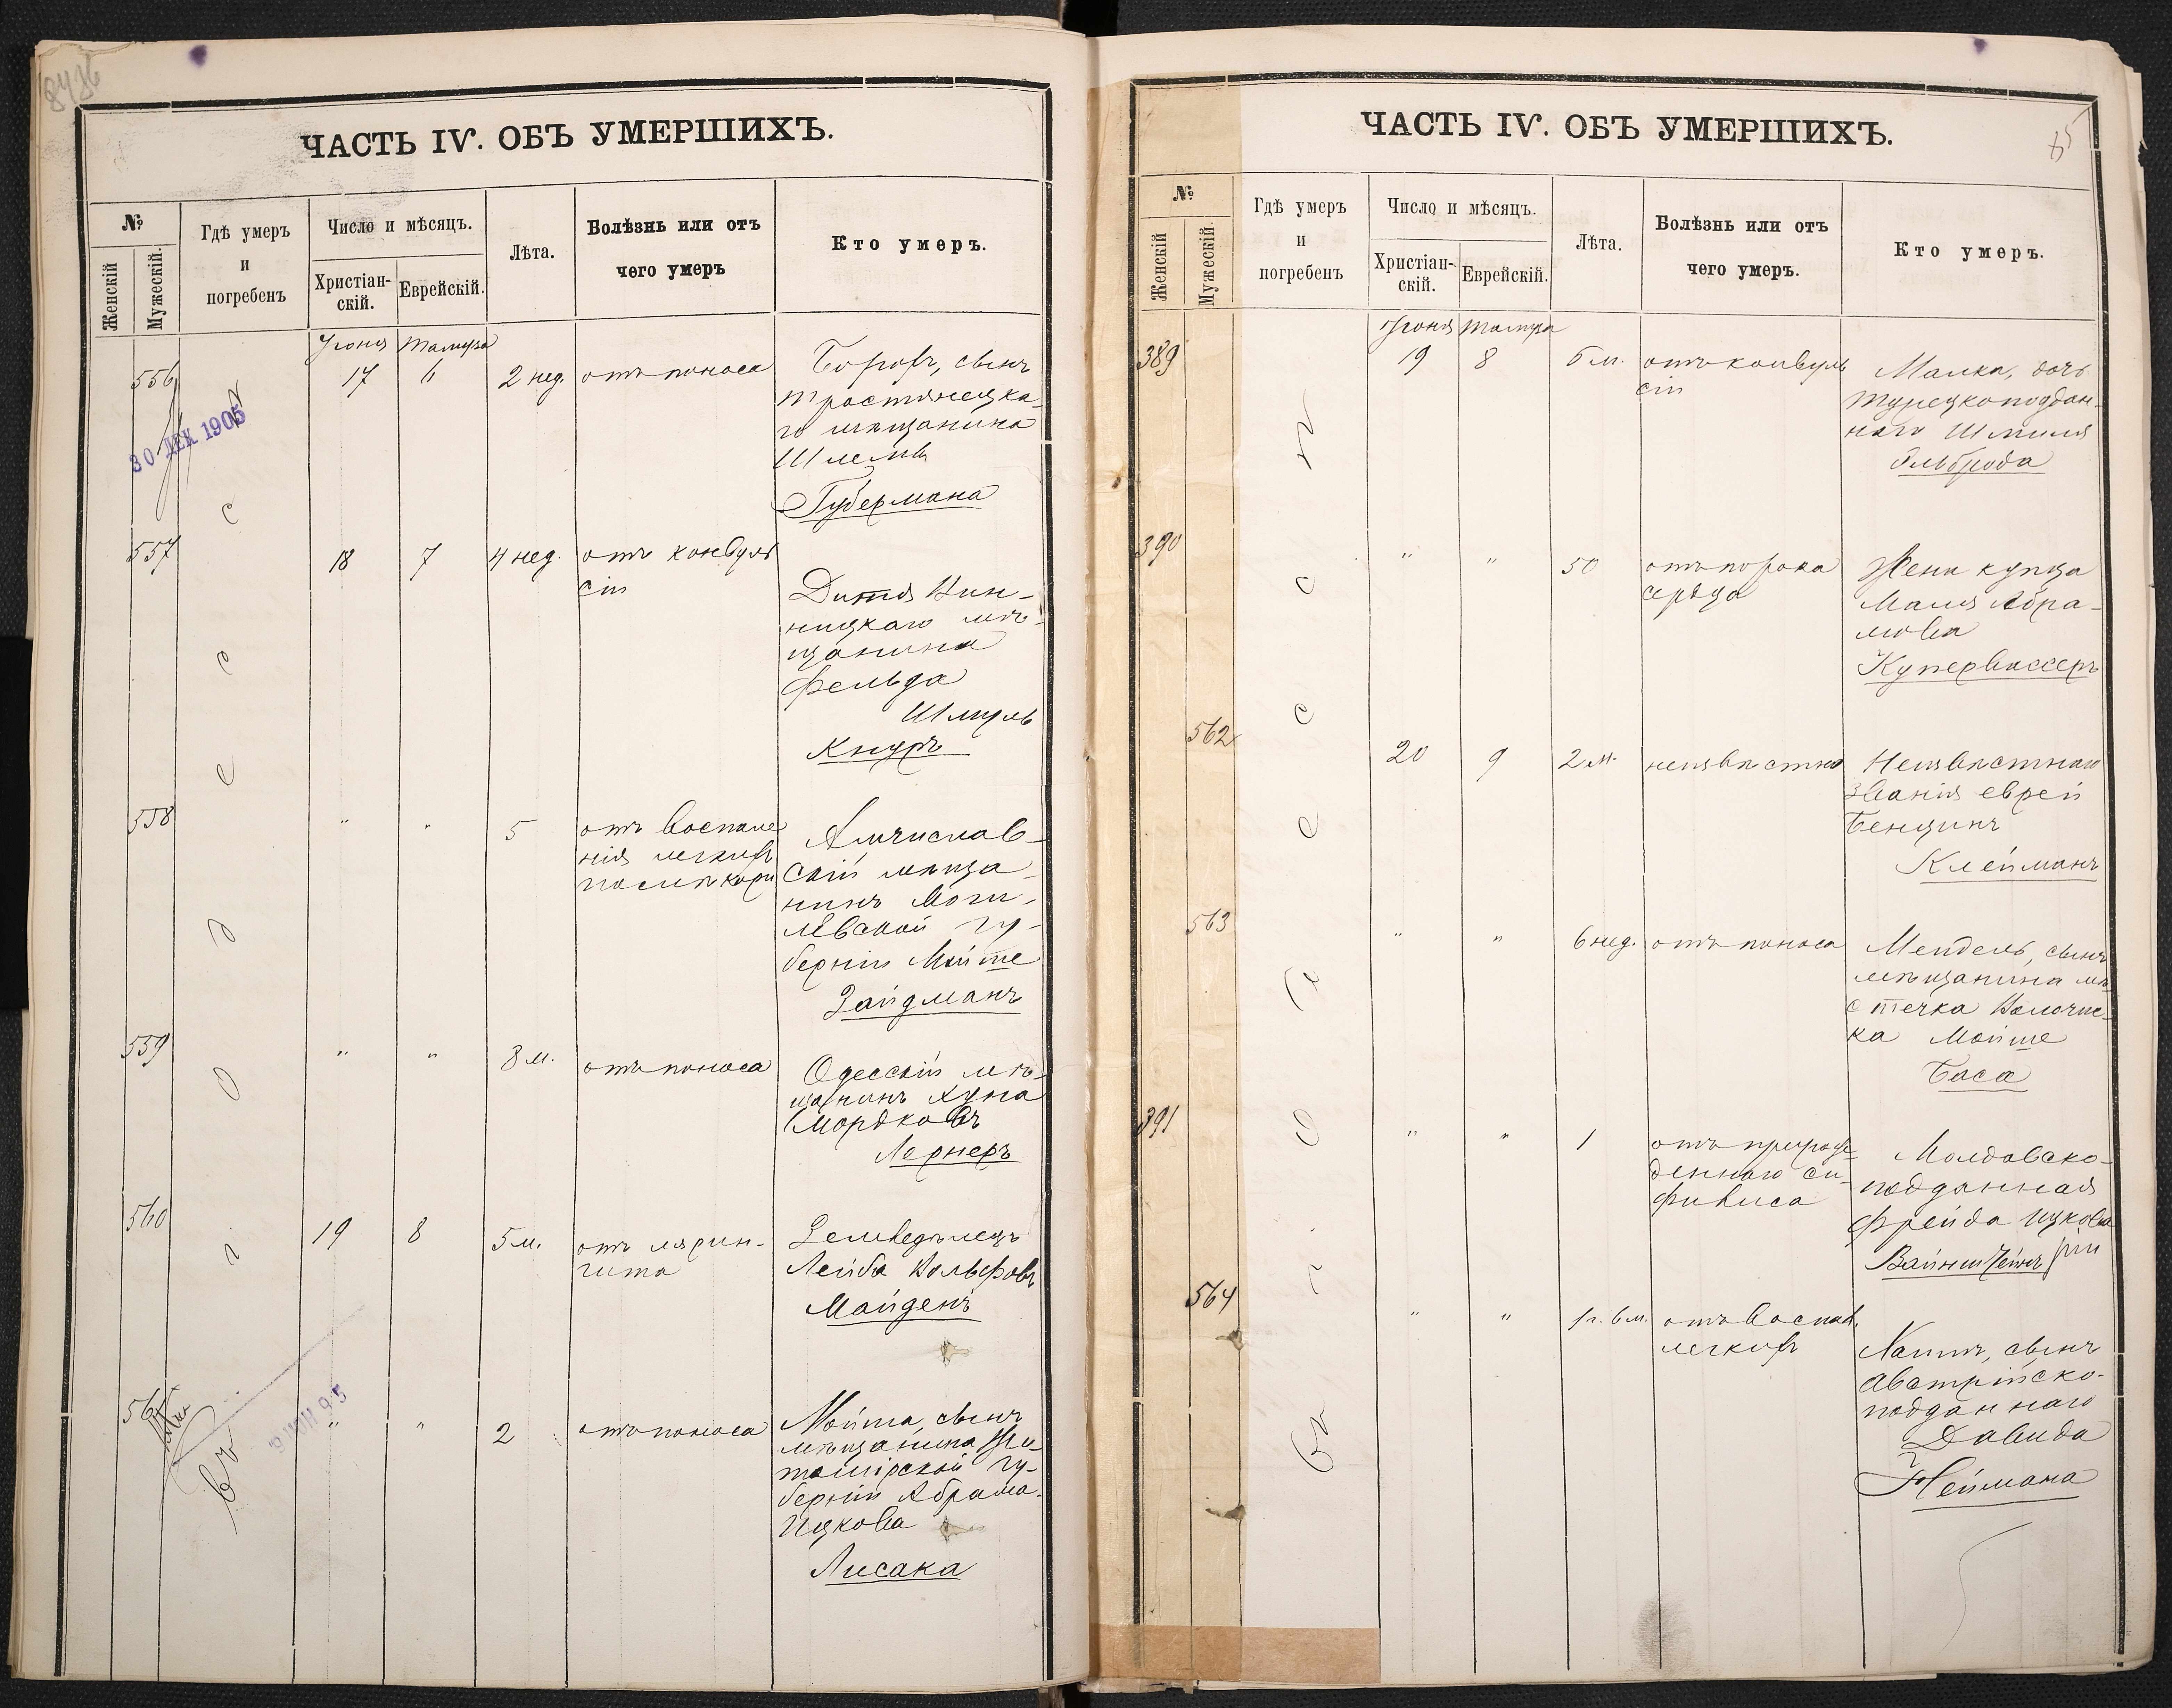 ЧАСТЬ IV. ОБЪ УМЕРШИХЪ.
№
Женскій
Мужескій.
Гдѣ умеръ
и
погребенъ
Число и мѣсяцъ.
Христіан-
скій.
Еврейскій.
Лѣта.
Болѣзнь или отъ
чего умеръ
Кто умеръ.
Іюня Тамуза
556
17
6
2 нед.
отъ поноса
сынъ
Тростянецка-
го мѣщанина
Шлемы
Губермана
30 ДЕК 1905
557
18
7
4 нед.
отъ конвуль
сіи
Дитя Вин-
ницкаго мѣ-
щанина
Фельда
Шмуль
Кнуръ
558
"
"
5
отъ воспале
нія легкихъ
послѣ кори
Амчислав-
скій мѣща-
нинъ Моги-
левской гу-
берніи Мойше
Зайдманъ
559
"
"
8 м.
отъ поноса
Одесскій мѣ-
щанинъ Хуна
Мордковъ
Лернеръ
560
19
8
5 м.
отъ ларин-
гита
Земледѣлецъ
Лейба Вольфовъ
Майденъ
561
"
"
2
отъ поноса
Мойша, сынъ
мѣщанина Жи-
томірской гу-
берніи Абрама-
Ицкова
Лисака
въ г. Одессѣ
ЧАСТЬ IV. ОБЪ УМЕРШИХЪ.
85
№
Женскій
Мужескій.
Гдѣ умеръ
и
погребенъ
Число и мѣсяцъ.
Христіан-
скій.
Еврейскій.
Лѣта.
Болѣзнь или отъ
чего умеръ.
Кто умеръ.
Іюня Тамуза
389
19
8
6 м.
отъ конвуль
сіи
Малка, дочь
Турецкоподдан-
наго Шмиля
Эльброда
390
"
"
50
отъ порока
сердца
Жена купца
Маля Абра-
мова
Купервассеръ
562
20
9
2 м.
неизвѣстно
Неизвѣстнаго
званія еврей
Бенціинъ
Клейманъ
563
"
"
6 нед.
отъ поноса
Мендель, сынъ
мѣщанина мѣ-
стечка Волочис-
ка Мойше
Баса
391
"
"
1
отъ прирож-
деннаго си-
филиса
Молдавско-
подданная
Фрейда Ицкова
Вайнштейнъ
564
"
"
1 г. 6 м.
отъ воспал.
легкихъ
сынъ
Австрійско-
подданнаго
Давида
Неймана
въ г. Одессѣ